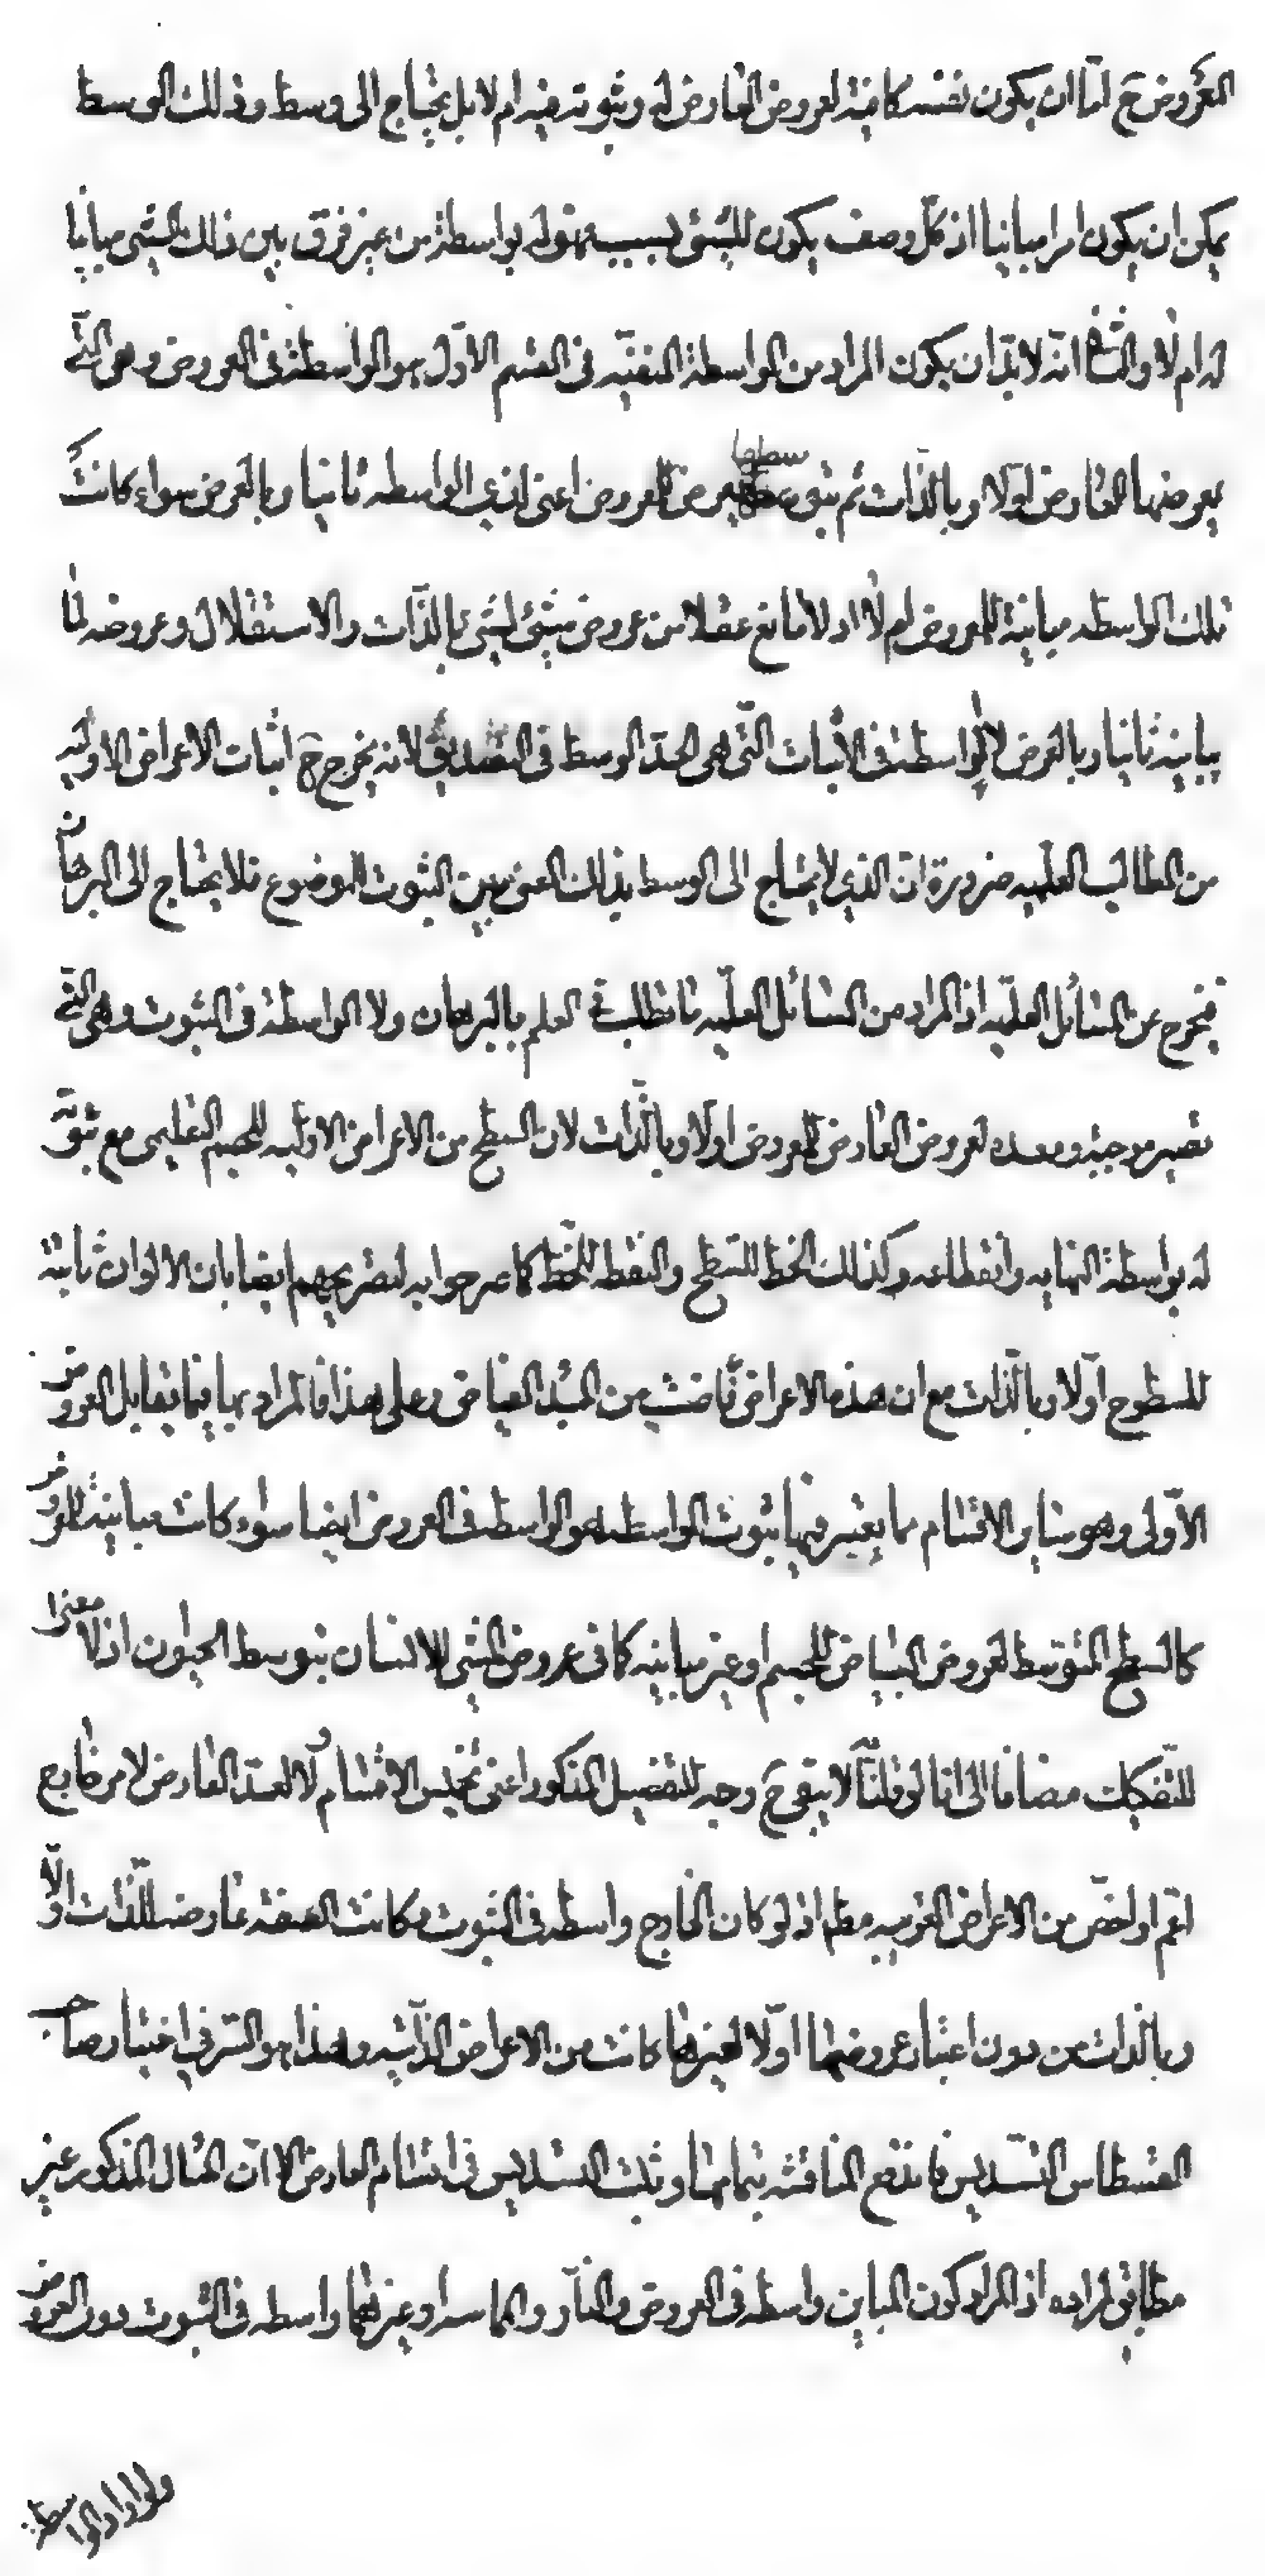 المعروض ح امّا ان يكون نفسه كافية لعروض العارض له وثبوته فيه ام لا بل يحتاج الى وسط وذلك الوسط
يمكن ان يكون امرا مباينا اذ كلّ وصف يكون للشئ بسببه فهو له بواسطة من غير فرق بين ذلك الشئ مباينا
له ام لا والثانى انّه لا بدّ ان يكون المراد من الواسطة المنفيّه فى القسم الاوّل هو الواسطة فى العروض وهى الّتى
يعرضها العارض اوّلا وبالذّات ثم بتوسطها يعرض المعروض اعنى لذى الواسطه ثانيا وبالعرض سواء كانت
تلك الواسطه مباينة للمعروض ام لا اذ لا مانع عقلا من عروض شئ لشئ بالذّات والاستقلال وعروضه لما
يباينه ثانيا وبالعرض لا الواسطة فى الاثبات الّتى هى الحدّ الوسط فى التصديق لانه يخرج ح اثبات الاعراض الاوليه
من المطالب العلميه ضرورة انّ الذى لا يحتاج الى الوسط بذلك المعنى بين الثبوت للموضوع فلا يحتاج الى البرهان
فيخرج عن المسائل العلميّه اذ المراد من المسائل العلميّه ما تطلب فى العلم بالبرهان ولا الواسطة فى الثبوت وهى الّتى
تصير موجبة ومعده لعروض العارض للمعروض اولا وبالذّات لان السطح من الاعراض الاوليه للجسم التعليمى مع ثبوته
له بواسطة النهايه وانقطاعه وكذلك الخط للسّطح والنقطه للخطّ كما صرحوا به لتصريحهم ايضا بان الالوان ثابتة
للسطوح اوّلا وبالذّات مع ان هذه الاعراض فاضت من المبدء الفياض وعلى هذا فالمراد بها فيما يقابل العروض
الاوّلى وهو ساير الاقسام مما يعتبر فيها ثبوت الواسطه هو الواسطه فى العروض ايضا سواء كانت مباينة للمعروض
كالسطح المتوسّط لعروض البياض للجسم او غير مباينه كما فى عروض المشى للانسان بتوسط الحيوان اذ لا معنى
للتفكيك مضافا الى انا لو قلنا لا يبقى ح وجه للتفصيل المذكور اعنى تخميس الاقسام ولا لعدّ العارض لامر خارج
اعم او اخصّ من الاعراض الغريبه مطم اذ لو كان الخارج واسطه فى الثبوت وكانت الصفه عارضه للذّات اوّلا
وبالذات من دون اعتبار عروضها اوّلا لغيرها كانت من الاعراض الذّاتيه وهذا هو السّر فى اختيار صاحب
القسطاس التسديس فاندفع المناقشه بتمامها وثبت التسديس فى اقسام العارض الا انّ المثال المذكور غير
مطابق لمراده اذ المراد كون المباين واسطه فى العروض والنّار والمماسه او غيرهما واسطه فى الثبوت دون العروض